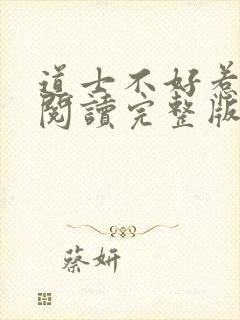 道士不好惹
閱讀完整版
蔡妍